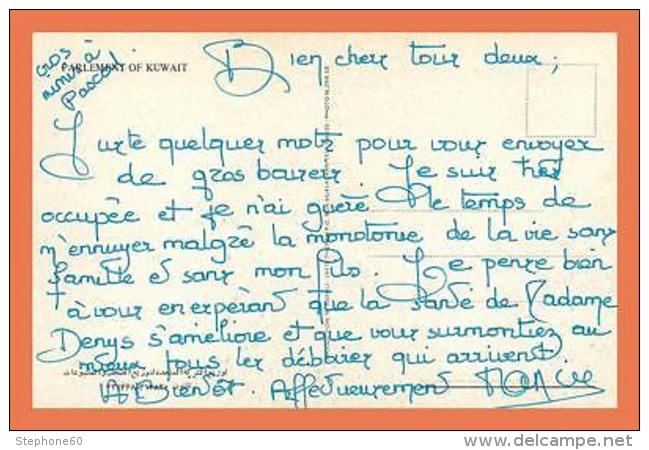 Gros
mimis à
Pascal.
PARLEMENT OF KUWAIT
Bien chers tous deux ;
Juste quelques mots pour vous envoyer
de gros baisers. Je suis très
occupée et je n'ai guère le temps de
m'ennuyer malgré la monotonie de la vie sans
famille et sans mon fils. Je pense bien
à vous en espérant que la santé de Madame
Denys s'améliore et que vous surmontiez au
mieux tous les déboires qui arrivent.
A Bientôt. Affectueusement
Stephone60
www.delcampe.net